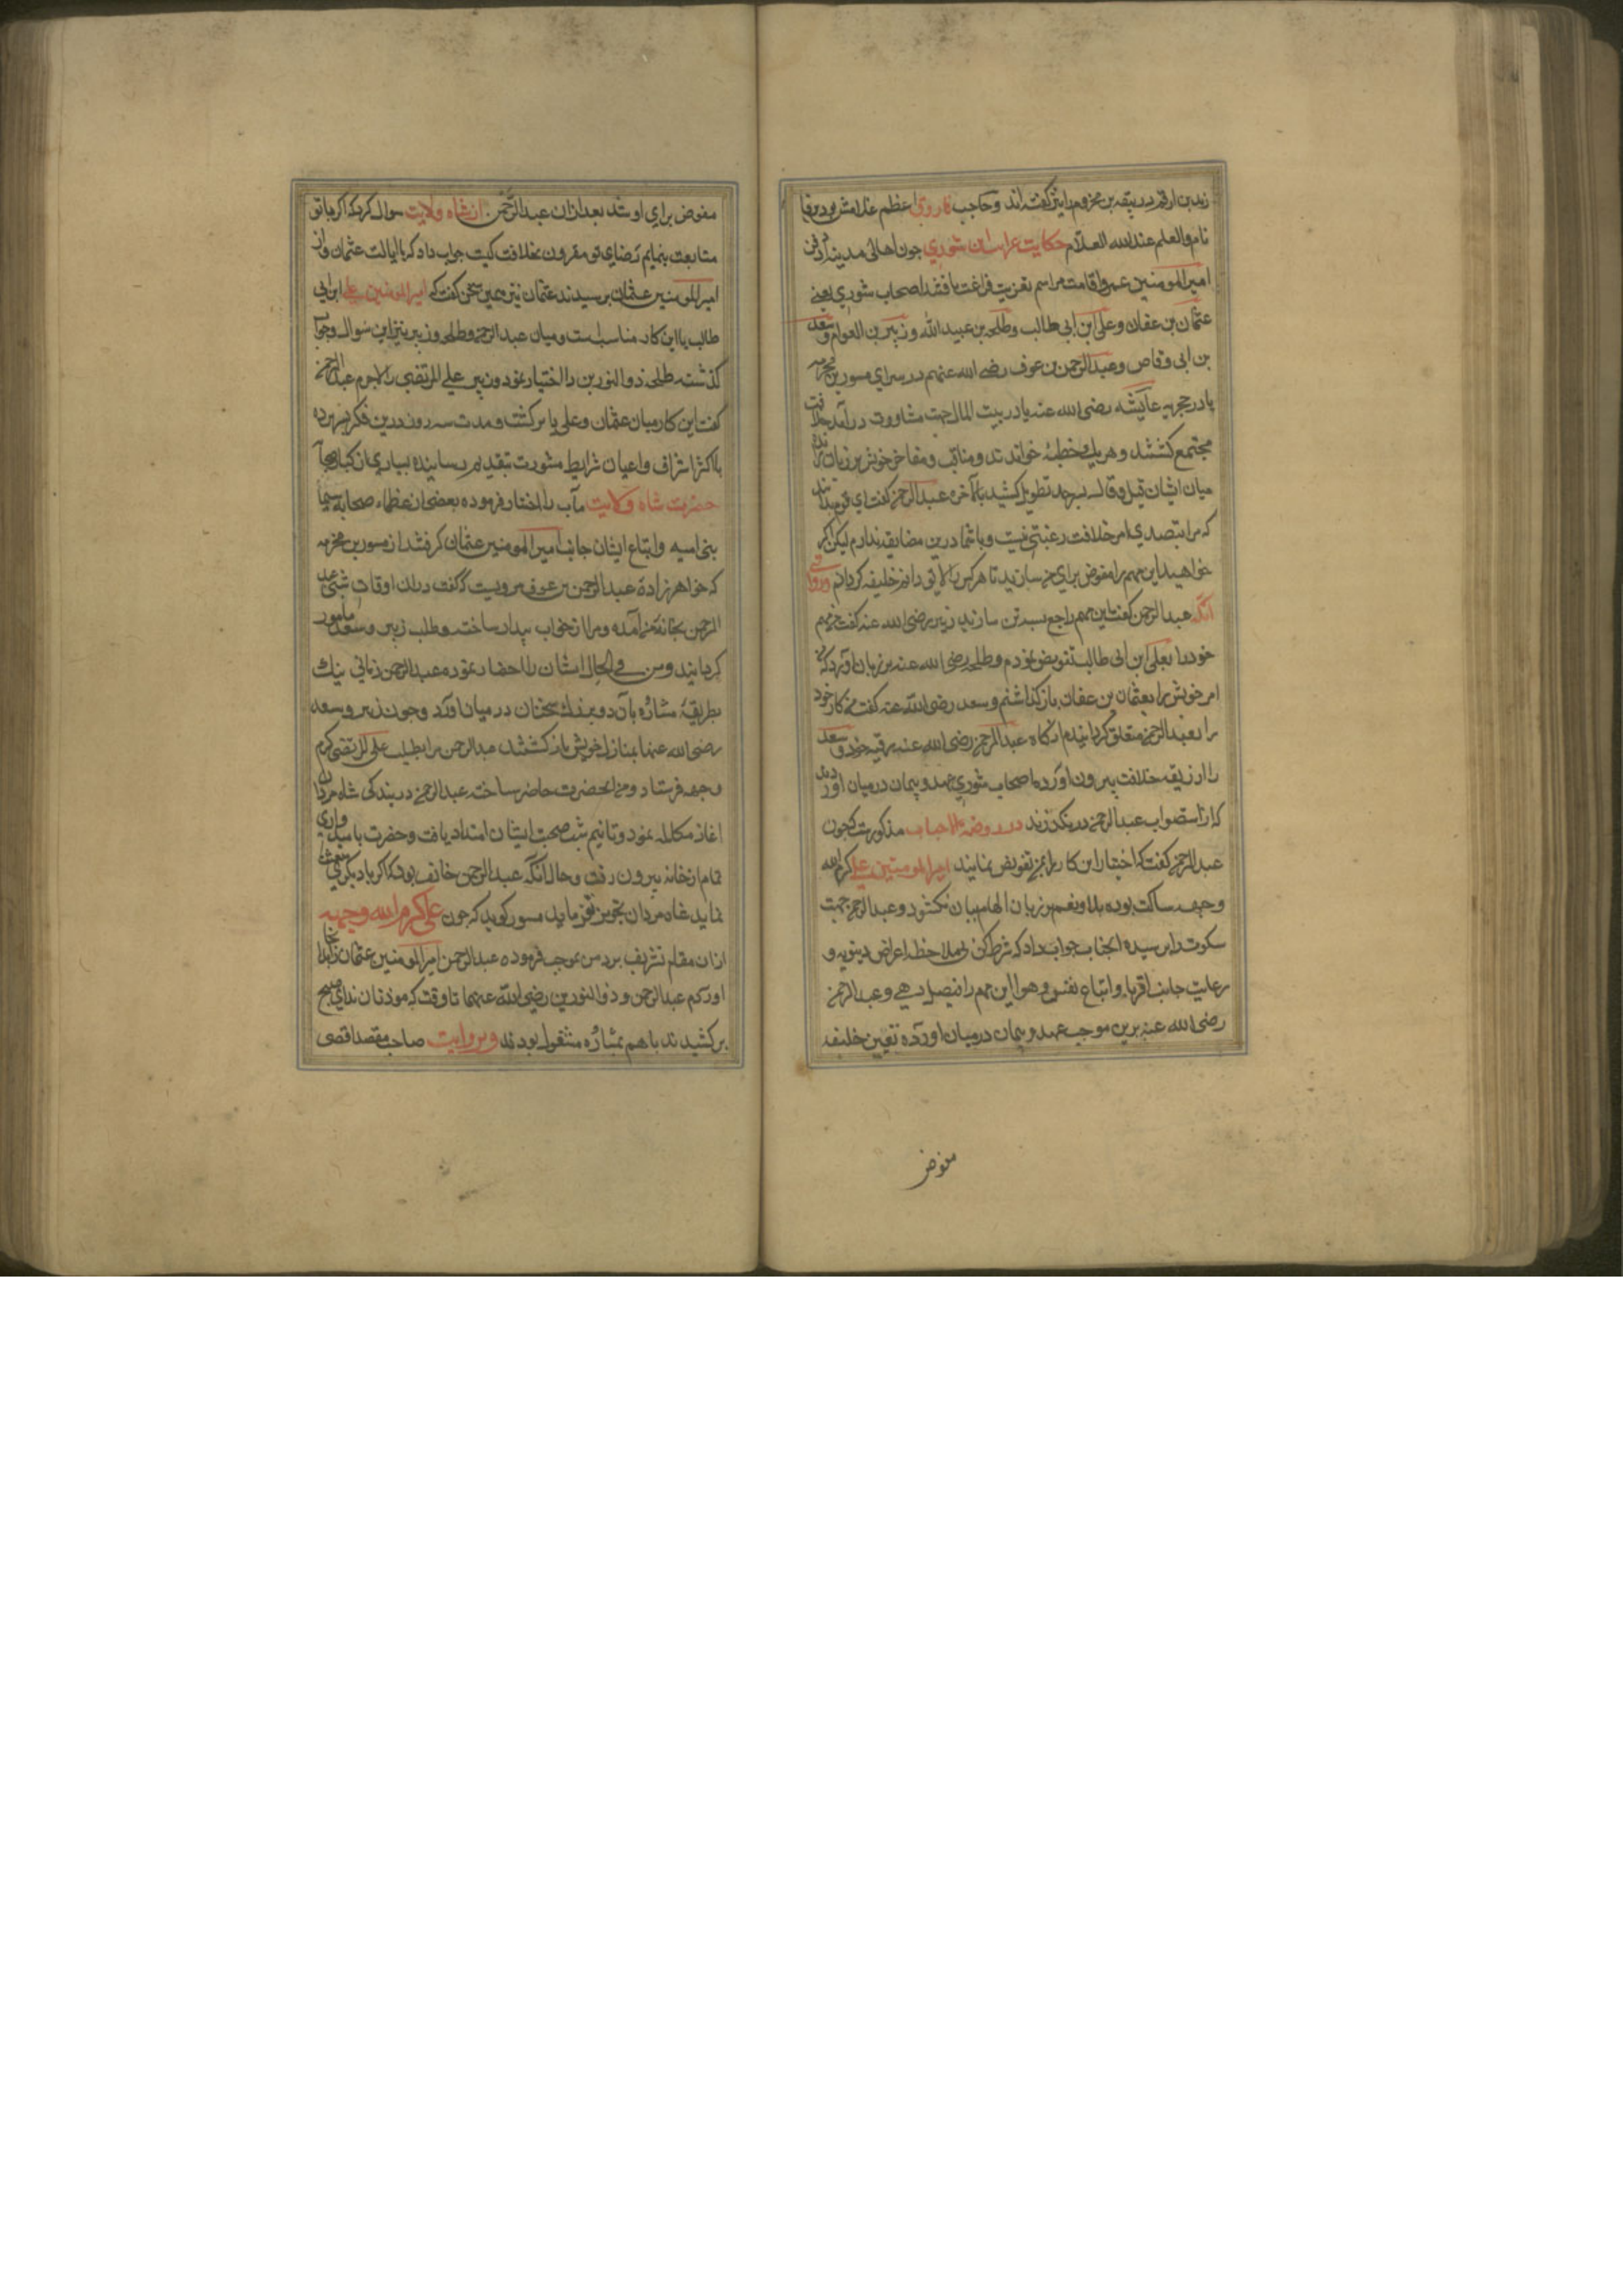 زید بن ارقم در بیقه بن مخزوم را نیز گفته‌اند و حاجب فاروق اعظم غلامش بود برفا
نام والعلم عندالله العلام حکایت شوری چون اهالی مدینه از دفن
امیرالمومنین عمر و اقامت مراسم تعزیت فراغت یافتند اصحاب شوری یعنی
عثمان بن عفان و علی ابن ابی طالب و طلحه بن عبیدالله و زبیر بن العوام و سعد
بن ابی وقاص و عبدالرحمن بن عوف رضی الله عنهم در سرای مسور بن مخرمه
یا در حجره عایشه رضی الله عنه یا در بیت المال جهت مشاورت در امر خلافت
مجتمع گشتند و هر یک خطبهٔ خواندند و مناقب و مفاخر خویش بر زبان راندند
میان ایشان قیل و قال بسرحد تطویل کشید بالآخره عبدالرحمن گفت ای قوم بدانید
که مرا بتصدی امر خلافت رغبتی نیست و با شما درین مضایقه ندارم لیکن اگر
خواهید این مهم را مفوض برای من سازید تا هر کس را لایق دانم خلیفه گردانم و روایتی
آنکه عبدالرحمن گفت این مهم راجع بسه تن سازید زبیر رضی الله عنه گفت من مهم
خود را بعلی ابن ابی طالب تفویض نمودم و طلحه رضی الله عنه بر زبان آورد که من
امر خویش را بعثمان بن عفان باز گذاشتم و سعد رضی الله عنه گفت من کار خود
را بعبدالرحمن متعلق گردانیدم آنگاه عبدالرحمن رضی الله عنه رقبه خود و سعد
را از ربقه خلافت بیرون آورده با اصحاب شوری عهد و پیمان در میان آورد
که از استصواب عبدالرحمن در نگذرند در روضة الاحباب مذکورست که چون
عبدالرحمن گفت که اختیار این کار را بمن تفویض نمایند امیرالمومنین علی کرم الله
وجهه ساکت بوده بلا و نعم بر زبان الهام بیان نگشود و عبدالرحمن جهت
سکوت را پرسیده انجناب جواب داد که شرط کن بی ملاحظه اعراض دینویه و
رعایت جانب اقربا و اتباع نفس و هوا این مهم را فیصل دهی و عبدالرحمن
رضی الله عنه برین موجب عهد و پیمان در میان آورده تعیین خلیفه
مفوض
مفوض برای او شد بعد ازان عبدالرحمن از شاه ولایت سوال کرد که اگر با تو
متابعت بنمایم رضای تو مقرون بخلافت کیست جواب داد که با ایالت عثمان و از
امیرالمومنین عثمان پرسیدند عثمان نیز همین سخن گفت که امیرالمومنین علی ابن ابی
طالب با این کار مناسب است و میان عبدالرحمن و طلحه و زبیر نیز این سوال و جواب
گذشت طلحه ذوالنورین را اختیار نمود و زبیر علی المرتضی را لاجرم عبدالرحمن
گفت این کار میان عثمان و علی با برگشت و مدت سه روز درین فکر بسر برده
با اکثر اشراف و اعیان شرایط مشورت بتقدیم رسانیده بسیاری از کبار صحابه
حضرت شاه ولایت مآب را اختیار فرموده بعضی از عظماء صحابه سیما
بنی امیه و اتباع ایشان جانب امیرالمومنین عثمان گرفتند از مسور بن مخرمه
که خواهرزادهٔ عبدالرحمن بن عوف مرویست که گفت دران اوقات شبی عبد
الرحمن بخانهٔ من آمده و مرا از خواب بیدار ساخت و بطلب زبیر و سعد مامور
گردانید و من فی الحال ایشان را احضار نمودم عبدالرحمن زمانی نیک
بطریقهٔ مشاوره با آن دو بزرگ سخنان در میان آورد و چون زبیر و سعد
رضی الله عنهما بمنازل خویش باز گشتند عبدالرحمن مرا بطلب علی المرتضی کرم
وجهه فرستاد و من انحضرت حاضر ساخته عبدالرحمن در بندگی شاه مردان
اغاز مکالمه نمود و تا نیم شب صحبت ایشان امتداد یافت و حضرت با میدواری
تمام از خانه بیرون رفت و حال آنکه عبدالرحمن خائف بود که اگر با دیگری بیعت
نماید شاه مردان تجویز نفرماید مسور گوید که چون علی کرم الله وجهه
ازان مقام تشریف برد من بموجب فرموده عبدالرحمن امیرالمومنین عثمان را بدانجا
اوردم عبدالرحمن و ذوالنورین رضی الله عنهما تا وقت که موذنان ندای صبح
برکشیدند باهم بمشاوره مشغول بودند و بروایت صاحب مقصد اقصی